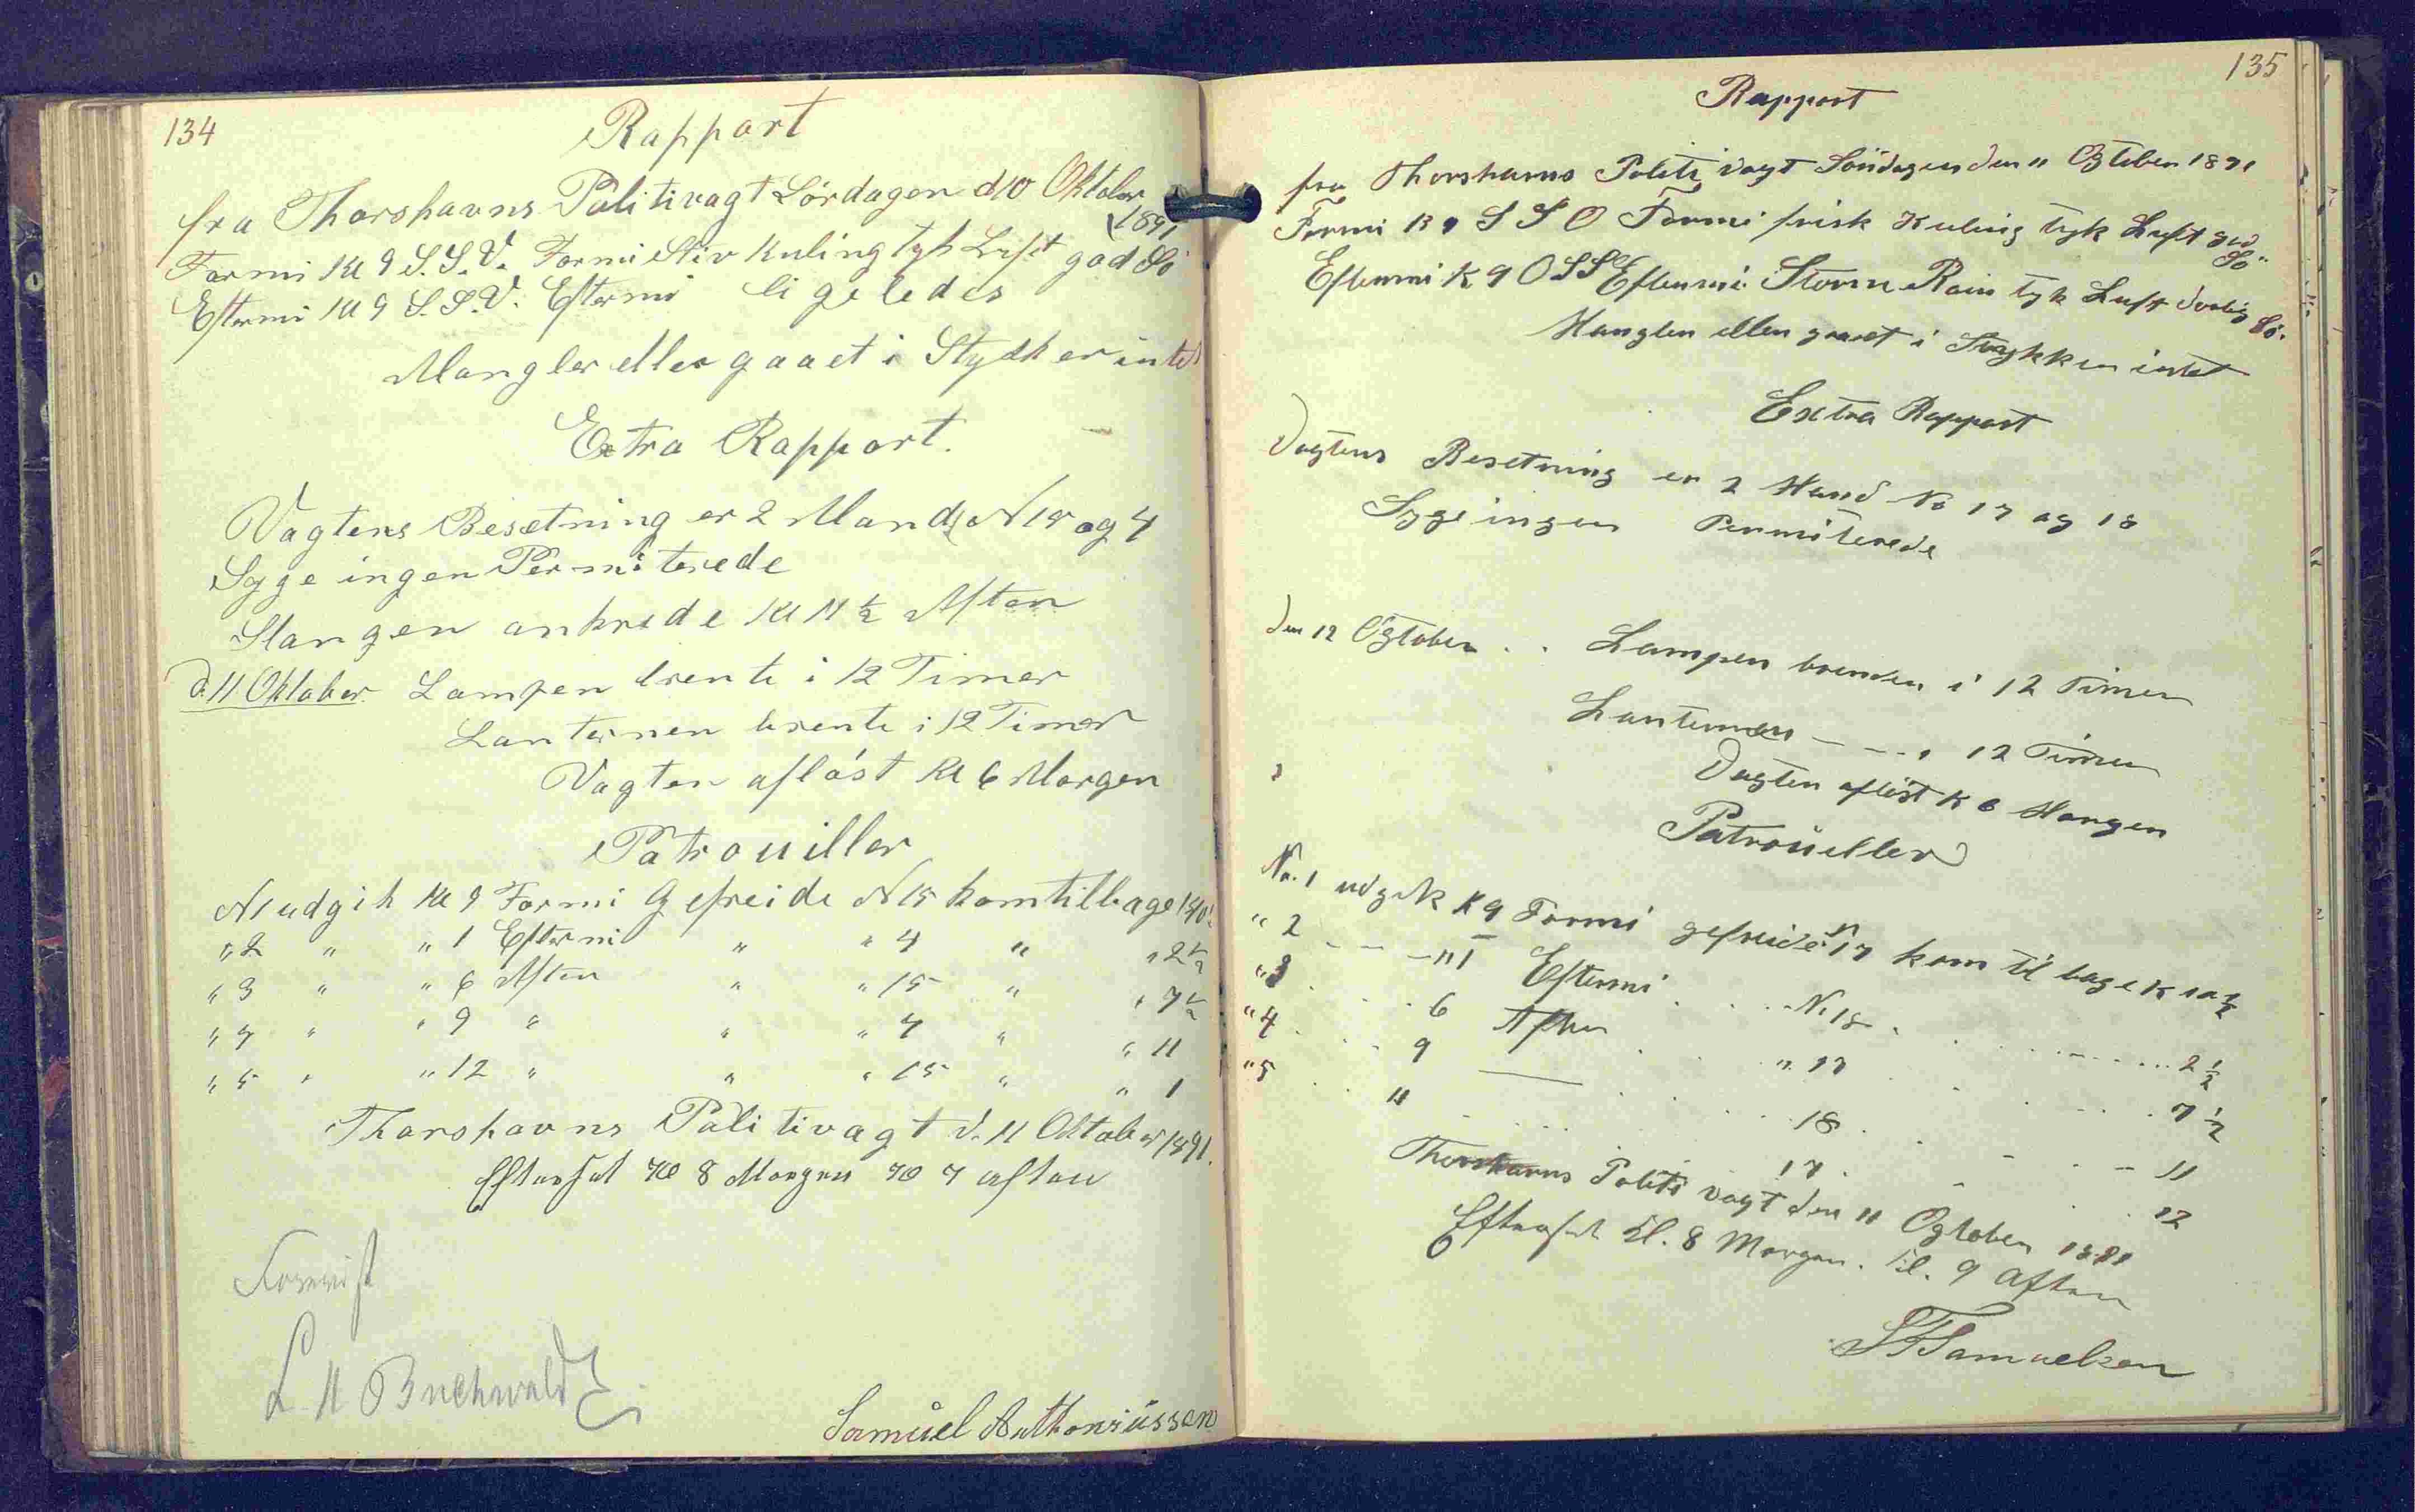 134
Rapport
fra Thorshavns Politivagt Lördagen d 10 Oktober
1891
Formi Kl 9 S.S.V. Formi Stiv Kuling tyk Luft god Sö
Eftermi Kl 9 S.S.V. Eftermi ligeledes
Mangler eller gaaet i Stykker intet
Extra Rapport.
Vagtens Besetning er 2 Mand N 15 og 4
Syge ingen Permiterede
Slangen ankrede Kl 11 1/2 Aften
d. 11 Oktober Lampen brente i 12 Timer
Lanternen brente i 12 Timer
Vagten aflöst Kl 6 Morgen
Patrouiller
N 1 udgik Kl 9 Formi Gefreide N 15 kom tilbage
" 2 " " 1 Eftermi " " 4 " " 2 1/2
" 3 " " 6 Aften " " 15 " " 7 1/2
" 4 " " 9 " " " 4 " " 11
" 5 " " 12 " " " 15 " " 1
Thorshavns Politivagt d. 11 Oktober 1891.
Efterset Kl 8 Morgen Kl 7 aften
L M Buchwald
Samuel Anthoniussen
135
Rapport
fra Thorshavns Politi vagt Söndagen den 11 Ogtober 1891
Formi K 9 S S O Formi frisk Kuling tyk Luft god
Sö
Eftermi K 9 O S S Eftermi Storm Rain tyk Luft Dorlig Sö.
Mangler eller gaaet i Stykker intet
Extra Rapport
Vagtens Besetning er 2 Mand No 17 og 18
Syge ingen Permiterede
Den 12 Ogtober . . Lampen brenden i 12 Timer
Lanternen - - - " 12 Timer
Vagten aflöst K 6 Morgen
Patroueller
No. 1 udgik K 9 Formi gefreide N 17 kom til bage K 10 1/2
" 2 - - - " 1 Eftermi . . . N. 18 . . . . 2 1/2
" 3 . . . 6 Aften . . . " 17 . . . 7 1/2
" 4 . . . 9 — . . . 18 . . . 11
" 5 . . . 11 . . . 17 . . . 12
Thorshavns Politi vagt den 11 Ogtober 1891
Efterset Kl. 8 Morgen. Kl. 9 Aften
S F Samuelsen